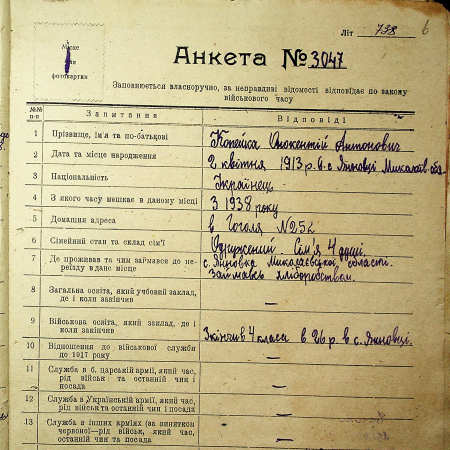 Літ 738 6
Місце
для
фотокартки
Анкета № 3047
Заповнюється власноручно, за неправдиві відомості відповідає по закону
військового часу
№№ п-п Запитання Відповіді
1 Прізвище, ім'я та по-батькові Копейка Інокентій Антонович
2 Дата та місце народження 2 квітня 1913 р. в с. Яновці Миколаїв. обл.
3 Національність Українець
4 З якого часу мешкає в даному місці З 1938 року
5 Домашня адреса в Гоголя N 252
6 Сімейний стан та склад сім'ї Одружений. Сім'я 4 душі.
7 Де проживав та чим займався до пе-
реїзду в дане місце
с. Яновка Миколаєвської області.
Займавсь хліборобством.
8 Загальна освіта, який учбовий заклад,
де і коли закінчив —
9 Військова освіта, який заклад, де і
коли закінчив Закінчив 4 класа в 26 р. в с. Яновці.
10 Відношення до військової служби
до 1917 року —
11 Служба в б. царській армії, який час,
рід військ та останній чин і
посада —
12 Служба в Українській армії, який час,
рід військ та останній чин і посада —
13 Служба в інших арміях (за винятком
червоної—рід військ, який час,
останній чин та посада —